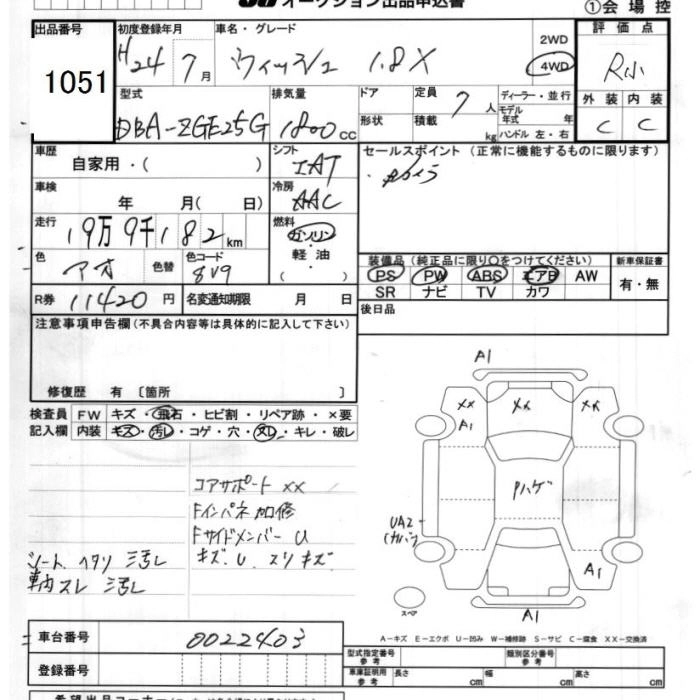 オークション出品申込書
①会場控
出品番号 初度登録年月 車名・グレード 2WD 評価点
1051 H24 7月 ウィッシュ 1.8X 4WD R小
型式 排気量 ドア 定員 7人 ディーラー・並行 外装 内装
モデル年式 年式
DBA-ZGE25G 1800cc 形状 積載 kg ハンドル 左・右 C C
車歴 自家用・( ) シフト IAT セールスポイント (正常に機能するものに限ります)
車検 年 月( 日) 冷房 AAC
走行 19万9千182km 燃料 ガソリン・軽油・( )
色 アオ 色替 色コード 8V9
装備品 (純正品に限り○をつけてください) 新車保証書
PS PW ABS エアB AW 有・無
SR ナビ TV カワ
R券 11420円 名変通知期限 月 日 後日品
注意事項申告欄(不具合内容等は具体的に記入して下さい)
修復歴 有〔箇所 〕
検査員 FW キズ・飛石・ヒビ割・リペア跡・×要
記入欄 内装 キズ・汚レ・コゲ・穴・スレ・キレ・破レ
コアサポート XX
Fインパネ加修
Fサイドメンバー U
キズ.U.スリキズ
シート ヘタリ 汚レ
車内 スレ 汚レ
A1
XX XX XX
A1
Pハゲ
UA2
(カバー)
A1
スペア A1
A-キズ E-エクボ U-凹み W-補修跡 S-サビ C-腐食 XX-交換済
車台番号 0022403
型式指定番号 参考 類別区分番号 参考
登録番号 車庫証明用 参考 長さ cm 幅 cm 高さ cm
希望出品コーナー